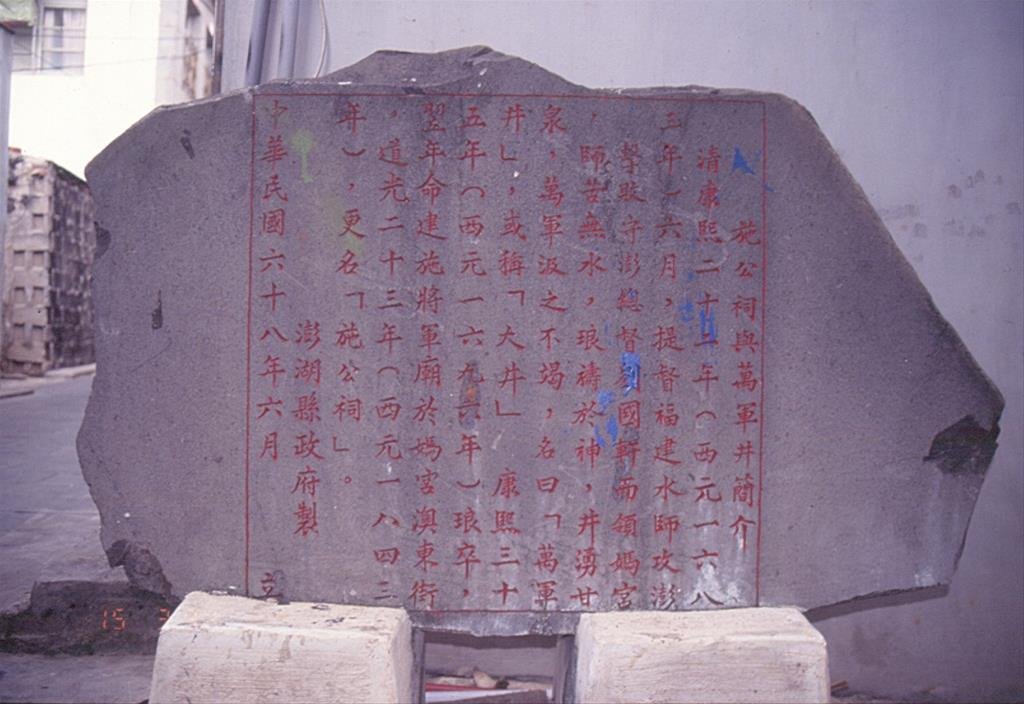 施公祠與萬軍井簡介
清康熙二十二年(西元一六八
三年)六月,提督福建水師攻澎
擊敗守澎總督劉國軒而領媽宮
,師苦無水,琅禱於神,井湧甘
泉,萬軍汲之不竭,名曰「萬軍
井」,或稱「大井」康熙三十
五年(西元一六九六年)琅卒,
翌年命建施將軍廟於媽宮澳東街
,道光二十三年(西元一八四三
年),更名「施公祠」。
澎湖縣政府製
中華民國六十八年六月 立
15